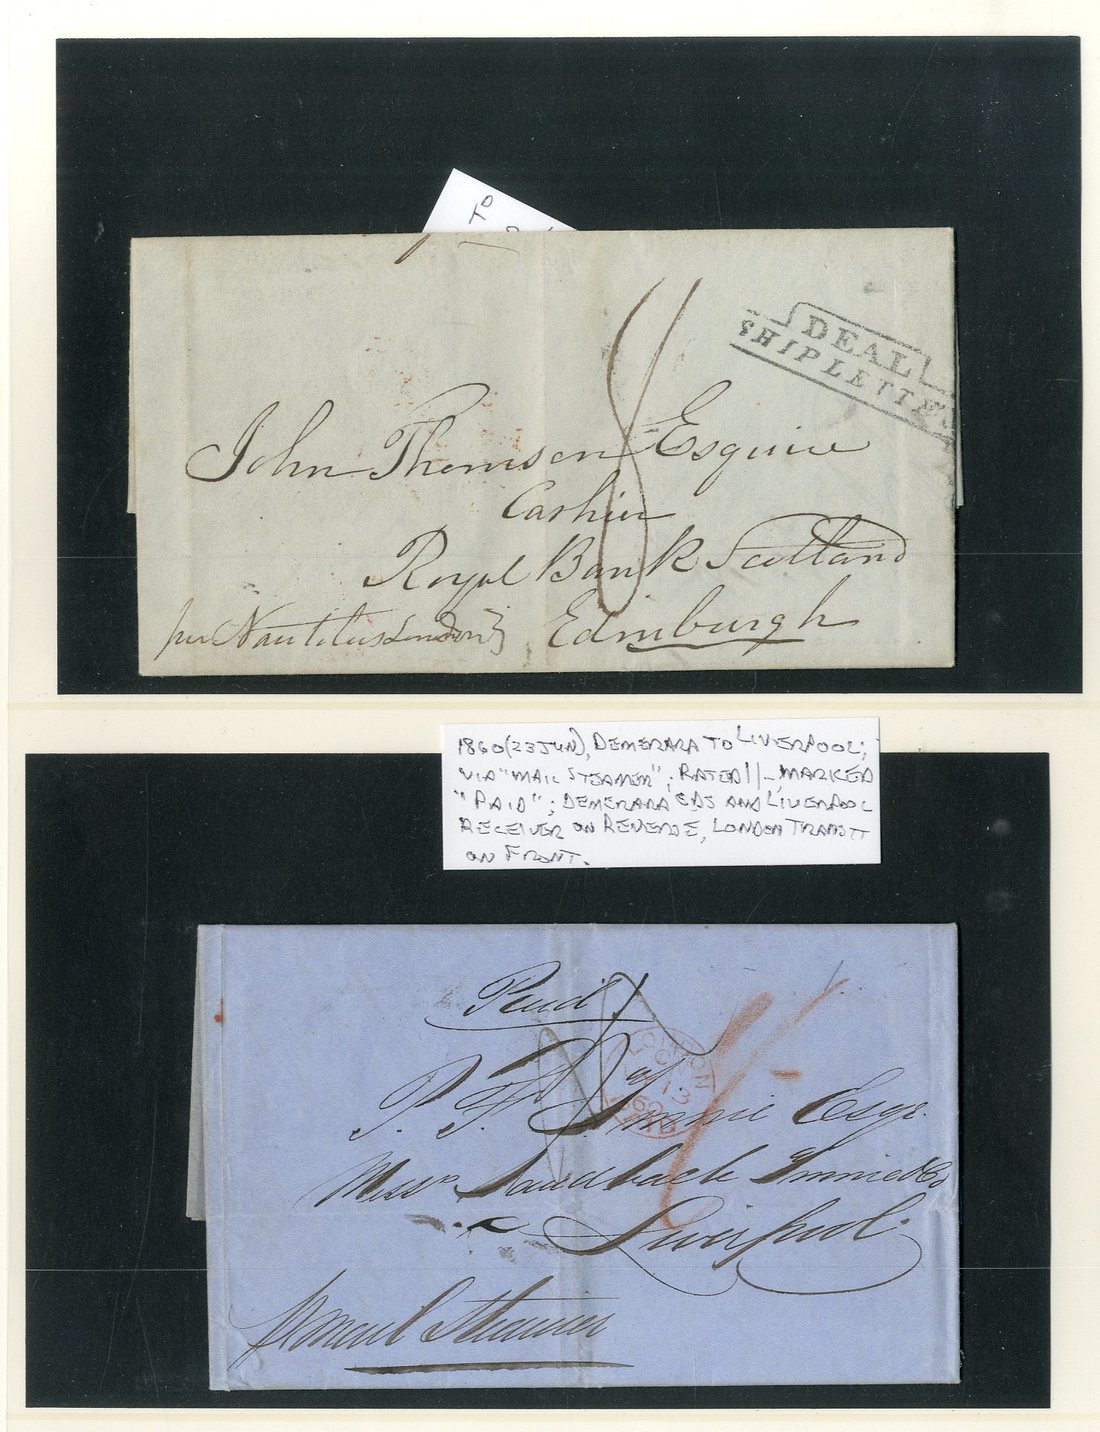 TO
DEAL
SHIP LETTER
John Thomson Esquire
Cashier
Royal Bank Scotland
Edinburgh
per Nautilus London
1860 (23 JUN), DEMERARA TO LIVERPOOL;
VIA "MAIL STEAMER"; RATED 1/- MARKED
"PAID"; DEMERARA CDS AND LIVERPOOL
RECEIVER ON REVERSE, LONDON TRANSIT
ON FRONT.
Paid
LONDON
13
60
PAID
P. F. Tinnie Esqr.
Messrs Sandbach Tinnie & Co
Liverpool
p mail Steamer